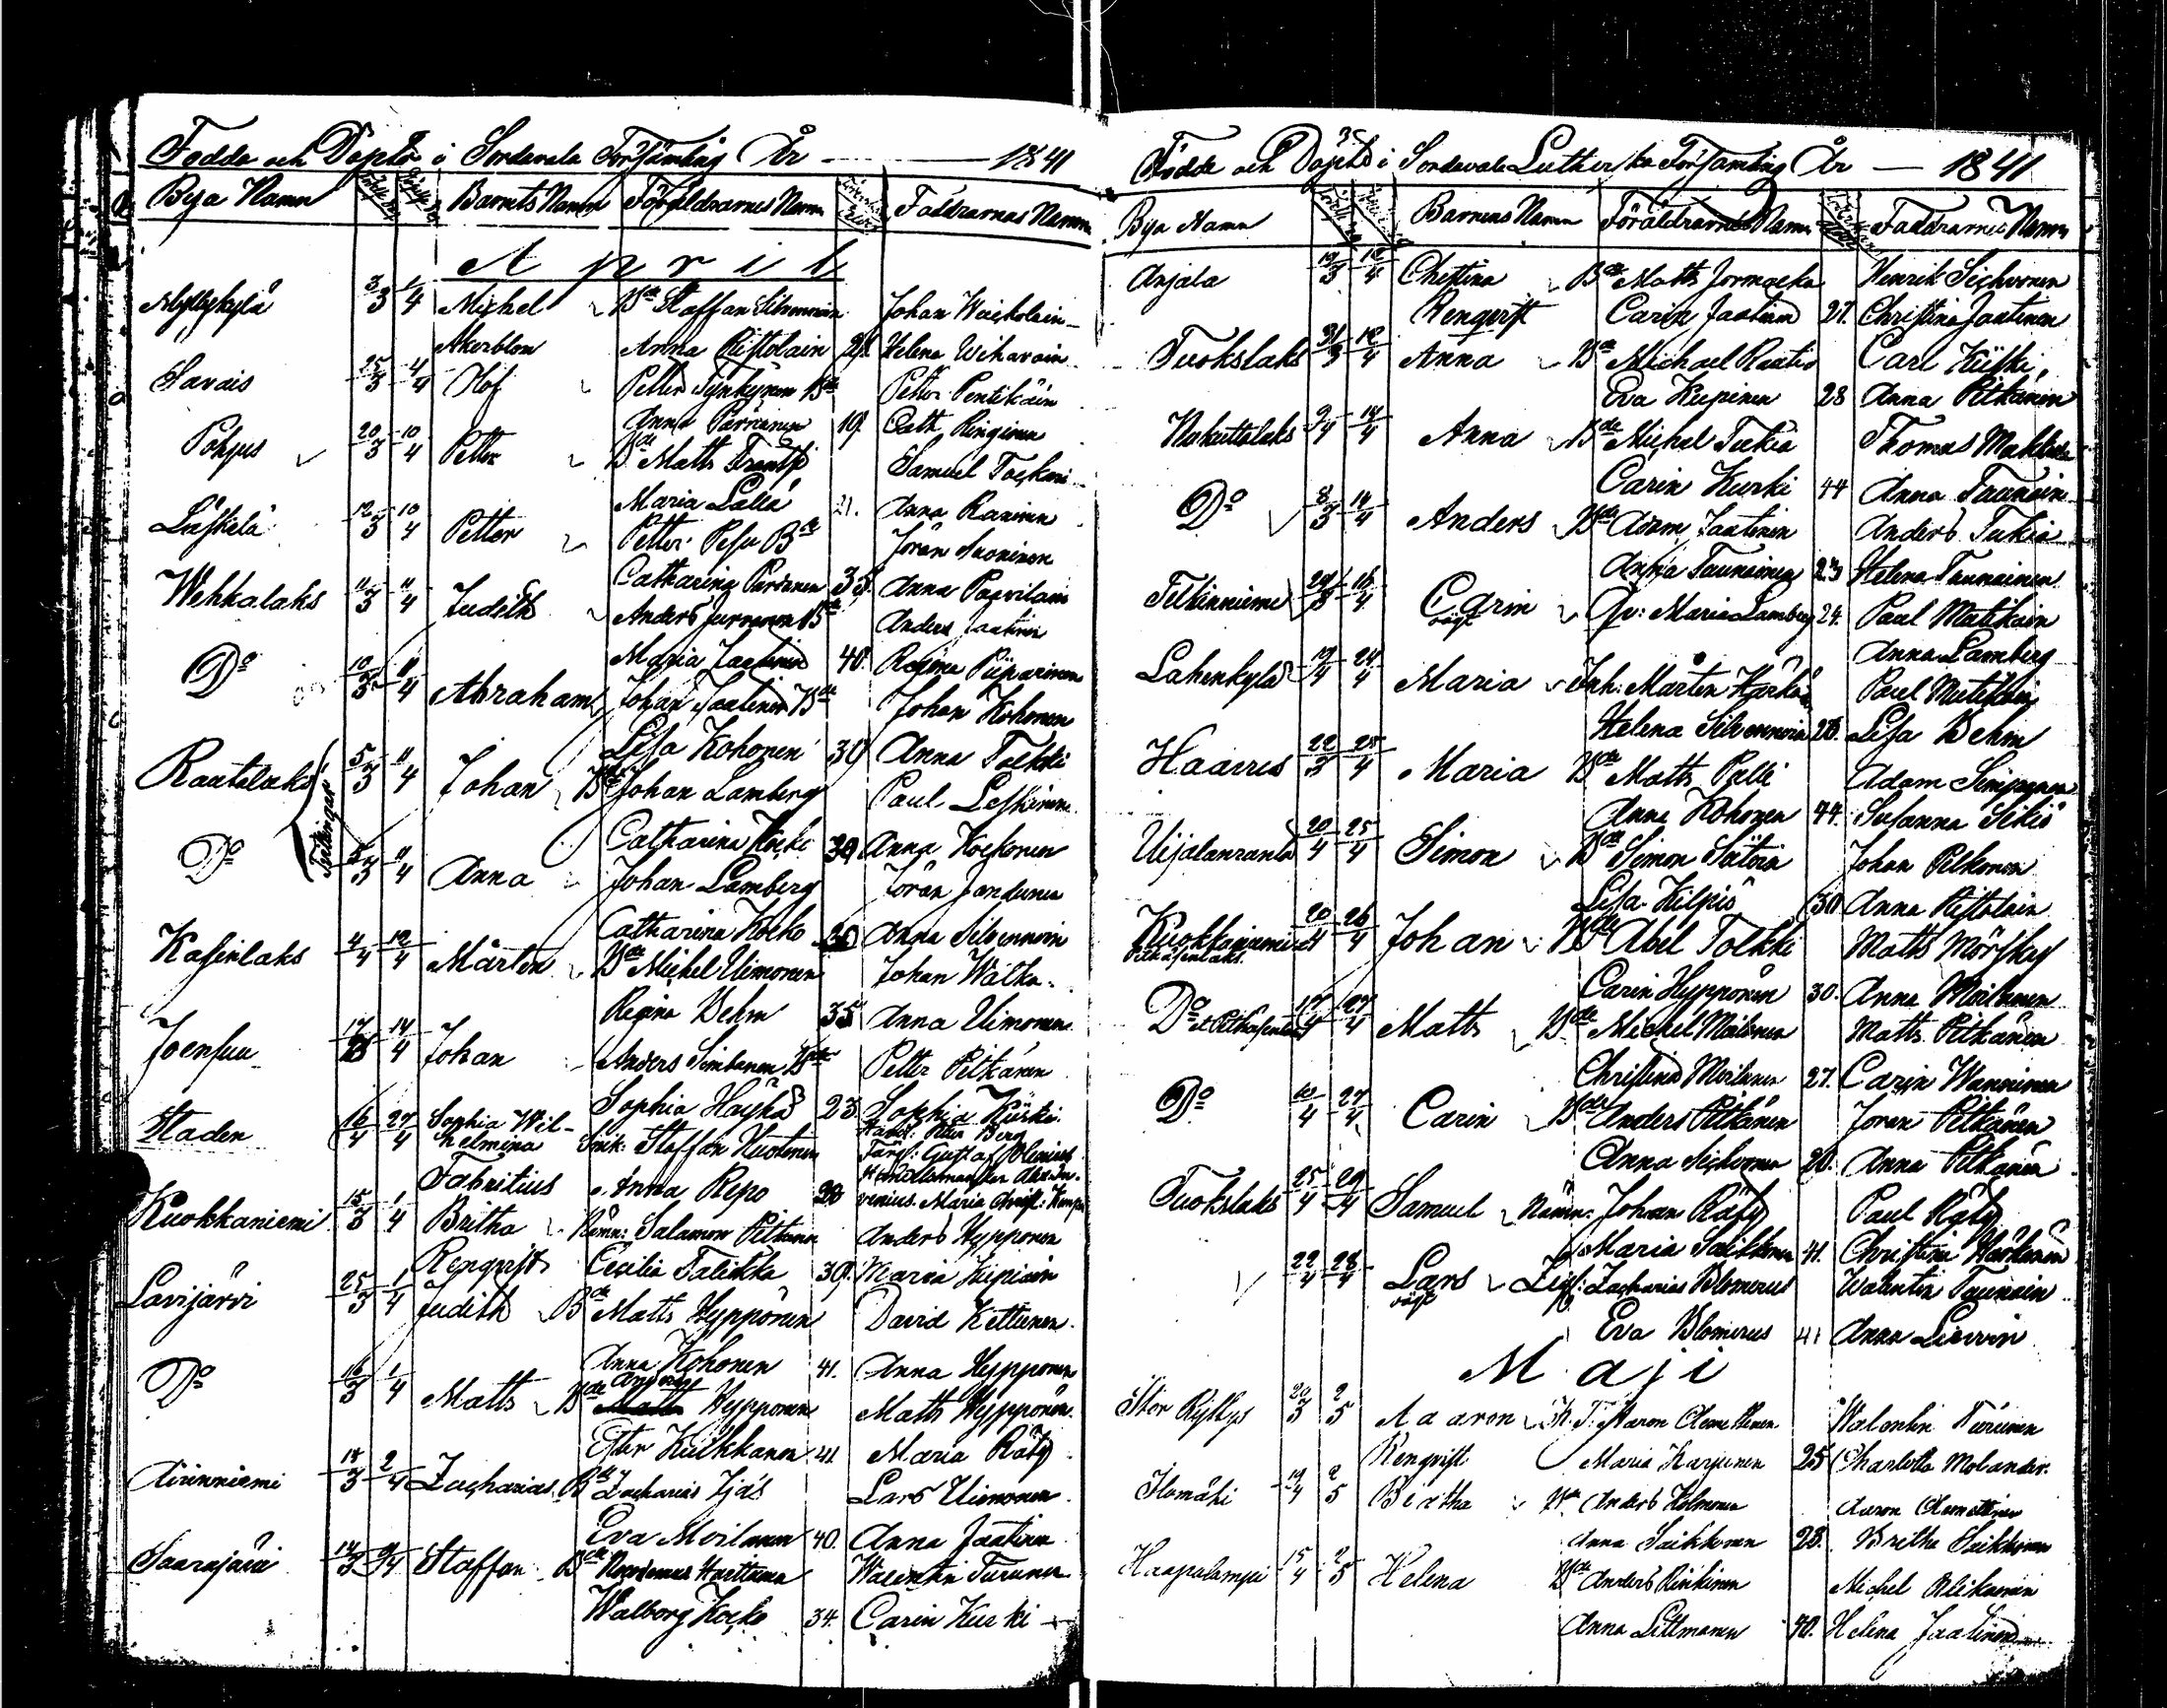 Födde och Döpte i Sordavala Församling År 1841
Bya Namn Barnets Namn Föräldrarnes Namn Faddrarnas Namn
April
Myllykylä 3/3 1/4 Michel Bde Staffan Silvennoin Johan Waiskolain
Akerblom Anna Ristolain 28. Helena Wihavain
Savais 25/3 4/4 Olof Petter Tynkynen Bde Petter Pentikäin
Anna Parviainen 19. Cath Ringinen
Pohjus 20/3 10/4 Petter Bde Matts Trantji Samuel Tockoni
Maria Lalla 21. Anna Raninen
Läskelä 12/3 10/4 Petter Petter Pesu Bde Jöran Suoninen
Catharina Pardanen 35. Anna Paavilain
Wehkalaks 11/3 11/4 Judith Anders Jurvanen Bde Anders Jaatinen
Maria Jaatinen 40. Regina Piiparinen
Do 10/3 11/4 Abraham Johan Jaatinen Bde Johan Kohonen
Lisa Kohonen 30 Anna Tolkki
Rautalaks 5/3 11/4 Johan Bde Johan Lamberg Paul Leskinen
Tvillingar
Catharina Kocko 30 Anna Kockonen
Do 5/3 11/4 Anna Johan Lamberg Jöran Jandunen
Catharina Kocko 30 Anna Silvennoin
Kasinlaks 4/4 12/4 Mårten Bde Michel Uimonen Johan Walka
Regina Behm 35 Anna Uimonen
Joensuu 14/4 Johan Anders Simbanen Bde Petter Pitkänen
Sophia Hayhä 23 Sophia Kiiski
Staden 16/4 27/4 Sophia Wilhelmina Snik: Staffan Huotonen Petter Berg
Färg: Gustaf Polenius
Fabritius Anna Repo 28 Maria Christ:
Kuokkaniemi 15/3 1/4 Britha Nämn: Salamon Pitkänen Anders Hypponen
Renqvist Cecilia Talikka 39. Maria Kiipiain
Lavijärvi 25/3 1/4 Judith Bde Matts Hyppönen David Kettunen
Anna Kohonen 41. Anna Hypponen
Do 16/3 1/4 Matts Bde Anders Hypponen Matts Hyppönen
Ester Kuikkanen 41. Maria Räty
Airinniemi 15/3 2/4 Zacharias Bde Zacharias Ijäs Lars Uimonen
Eva Moilanen 40. Anna Jaatinen
Saarajärvi 14/3 9/4 Staffan Bde Nicodemus Harttunen Walentin Turunen
Walborg Kocko 34. Carin Kurki
Födde och Döpte i Sordavala Lutherska Församling År 1841
Bya Namn Barnens Namn Föräldrarnes Namn Faddrarnes Namn
Anjala 19/3 12/4 Christina Bde Matts Jormacka Henrik Sichvonen
Renqvist Carin Jaatinen 27. Christina Jaatinen
Tuokslaks 31/3 12/4 Anna Bde Michael Rautio Carl Kiiski
Eva Kiipinen 28 Anna Pitkänen
Nakuttalaks 9/4 14/4 Anna Bde Michel Tukia Thomas
Carin Kurki 44 Anna Taunain
Do 8/3 14/4 Anders Bde Adam Jaatinen Anders Tukia
Anna Taunainen 23 Helena Taunainen
Telkinniemi 29/3 16/4 Carin Qv: Maria Lamberg 24. Paul Matikain
oägt Anna Lamberg
Lahenkylä 19/4 24/4 Maria Inh: Mårten Hörkö Paul Matikain
Helena Silvennoin 28. Lisa Behm
Haavus 22/3 25/4 Maria Bde Matts Palli Adam Simpanen
Anna Kohonen 44. Susanna Sikiö
Uijalanranta 20/4 25/4 Simon Bde Simon Siitoin Johan Pelkonen
Lisa Kilpiö 30 Anna Ristolain
Kuokkaniemi 20/4 26/4 Johan Bde Abel Tolkki Matts Mörsky
Pitkäsenlaks Carin Hyppönen 30. Anna Moilanen
Do et Pitkäsenlaks 19/4 27/4 Matts Bde Michel Moilanen Matts Pitkänen
Christina Moilanen 27. Carin Wanninen
Do 10/4 27/4 Carin Bde Anders Pitkänen Jöran Pitkänen
Anna Sichvonen 20. Anna Pitkänen
Tuokslaks 25/4 29/4 Samuel Nämn: Johan Räty Paul Räty
Maria Saikkonen 41. Christina
22/4 28/4 Lars Zacharias Blomerus Walentin Taunain
oägt Eva Blomerus 41 Anna
Maji
Stor Rytttys 20/3 2/5 Aaron Aaron Clemettinen Walentin Turunen
Renqvist Maria Karjunen 25 Charlotta Molander
Ilomäki 19/4 2/5 Britha Bde Anders Holmonen Aaron Clemettinen
Anna Saikkonen 28. Britha Saikkonen
Haapalampi 15/4 2/5 Helena Bde Anders Rinkinen Michel Olikainen
Anna Littmanen 40. Helena Jaatinen